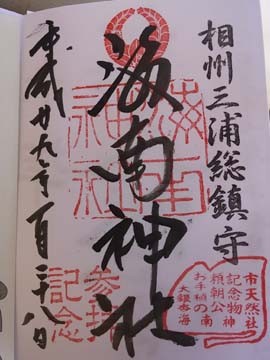 相州三浦総鎮守
海南神社
平成廿九年一月二十八日
海南神社
参拝
記念
市天然
記念物
頼朝公
お手植の
大銀杏
海南神社